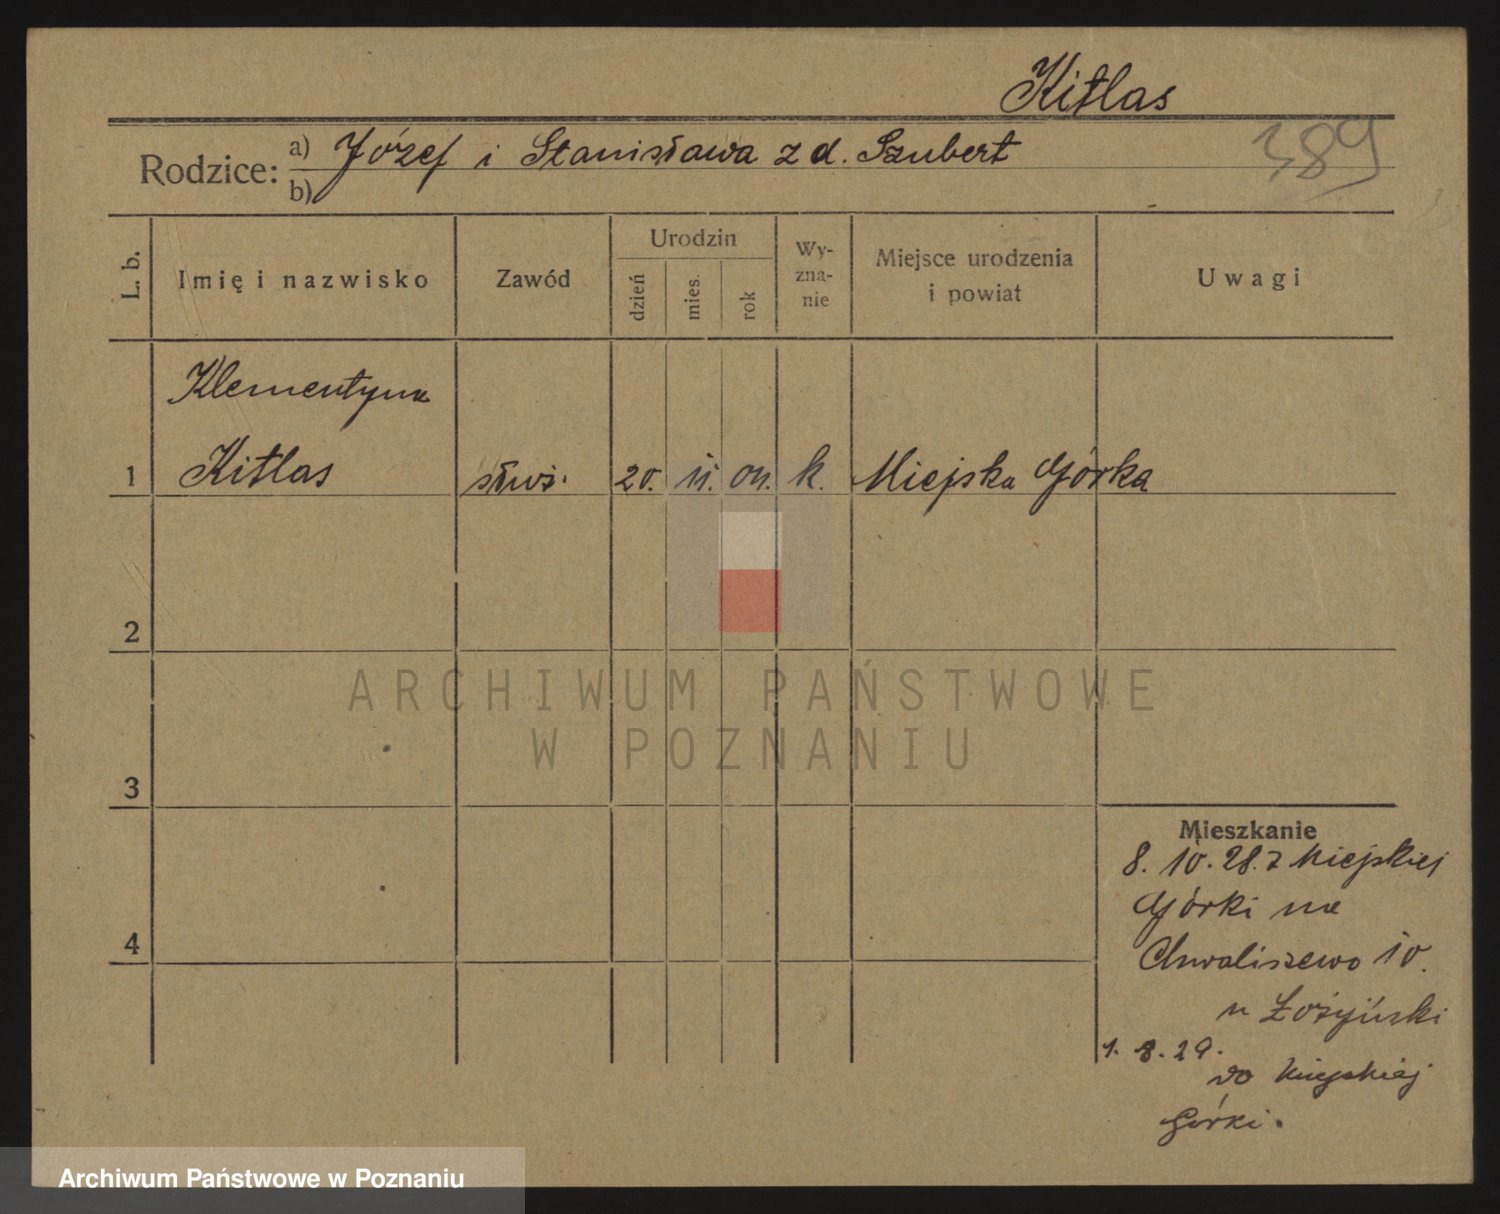 Kitlas
389
Rodzice: a) Józef i Stanisława z d. Szubert
b)
L. b. Imię i nazwisko Zawód Urodzin dzień mies. rok Wy-zna-nie Miejsce urodzenia i powiat Uwagi
Klementyna
1 Kitlas służ. 20. 11. 04. k. Miejska Górka
2
ARCHIWUM PAŃSTWOWE
W POZNANIU
3
Mieszkanie
8. 10. 28. z Miejskiej
Górki na
4
Chwaliszewo 10.
u
1. 8. 29.
do Miejskiej
Górki.
Archiwum Państwowe w Poznaniu